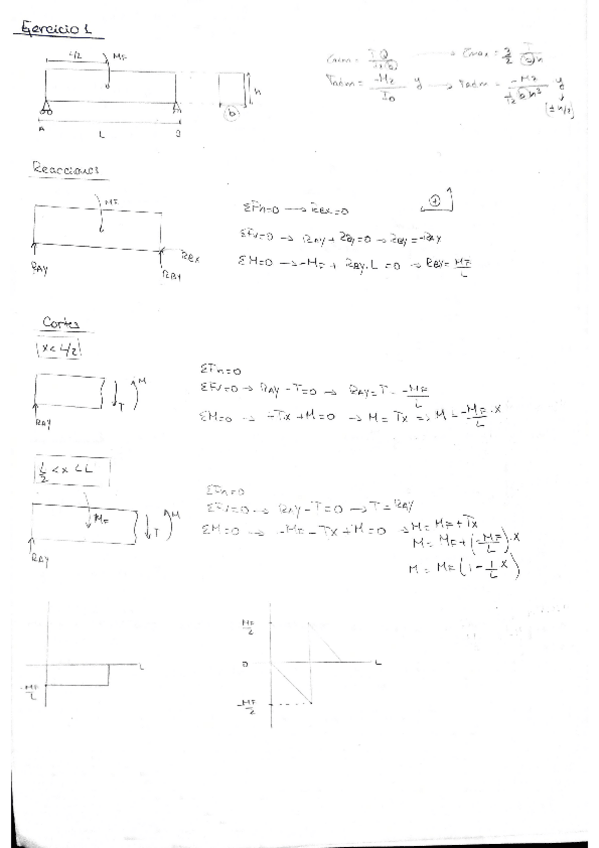 Ejercicio 1
L/2 MF
h
b
A L B
τadm = TQ / I₀(b) → τmax = 3/2 T / (b)h
σadm = -Mz / I₀ y → σadm = -Mz / 1/12 (b)h³ y
(±h/2)
Reacciones
MF
RAY
RBX
RBY
ΣFH=0 → RBX=0
ΣFV=0 → RAY + RBY=0 → RBY=-RAY
ΣM=0 → -MF + RBY.L =0 → RBY= MF/L
Cortes
x< L/2
RAY T M
ΣFH=0
ΣFV=0 → RAY-T=0 → RAY=T = -MF/L
ΣM=0 → -Tx+M=0 → M=Tx ⇒ M = -MF/L · x
L/2 <x<L
MF T M
RAY
ΣFH=0
ΣFV=0 → RAY-T=0 → T=RAY
ΣM=0 → -MF-Tx+M=0 → M=MF+Tx
M= MF+(-MF/L)·x
M= MF(1- 1/L x)
-MF/L L
MF/2
0 L
-MF/2